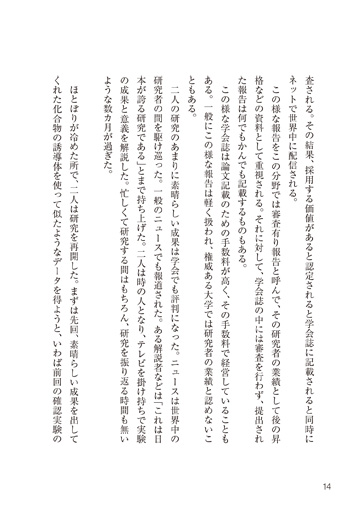 査される。その結果、採用する価値があると認定されると学会誌に記載されると同時に
ネットで世界中に配信される。
この様な報告をこの分野では審査有り報告と呼んで、その研究者の業績として後の昇
格などの資料として重視される。それに対して、学会誌の中には審査を行わず、提出され
た報告は何でもかんでも記載するものもある。
この様な学会誌は論文記載のための手数料が高く、その手数料で経営していることも
ある。一般にこの様な報告は軽く扱われ、権威ある大学では研究者の業績と認めないこ
ともある。
二人の研究のあまりに素晴らしい成果は学会でも評判になった。ニュースは世界中の
研究者の間を駆け巡った。一般のニュースでも報道された。ある解説者などは「これは日
本が誇る研究である」とまで持ち上げた。二人は時の人となり、テレビを掛け持ちで実験
の成果と意義を解説した。忙しくて研究する間はもちろん、研究を振り返る時間も無い
ような数カ月が過ぎた。
ほとぼりが冷めた所で、二人は研究を再開した。まずは先回、素晴らしい成果を出して
くれた化合物の誘導体を使って似たようなデータを得ようと、いわば前回の確認実験の
14